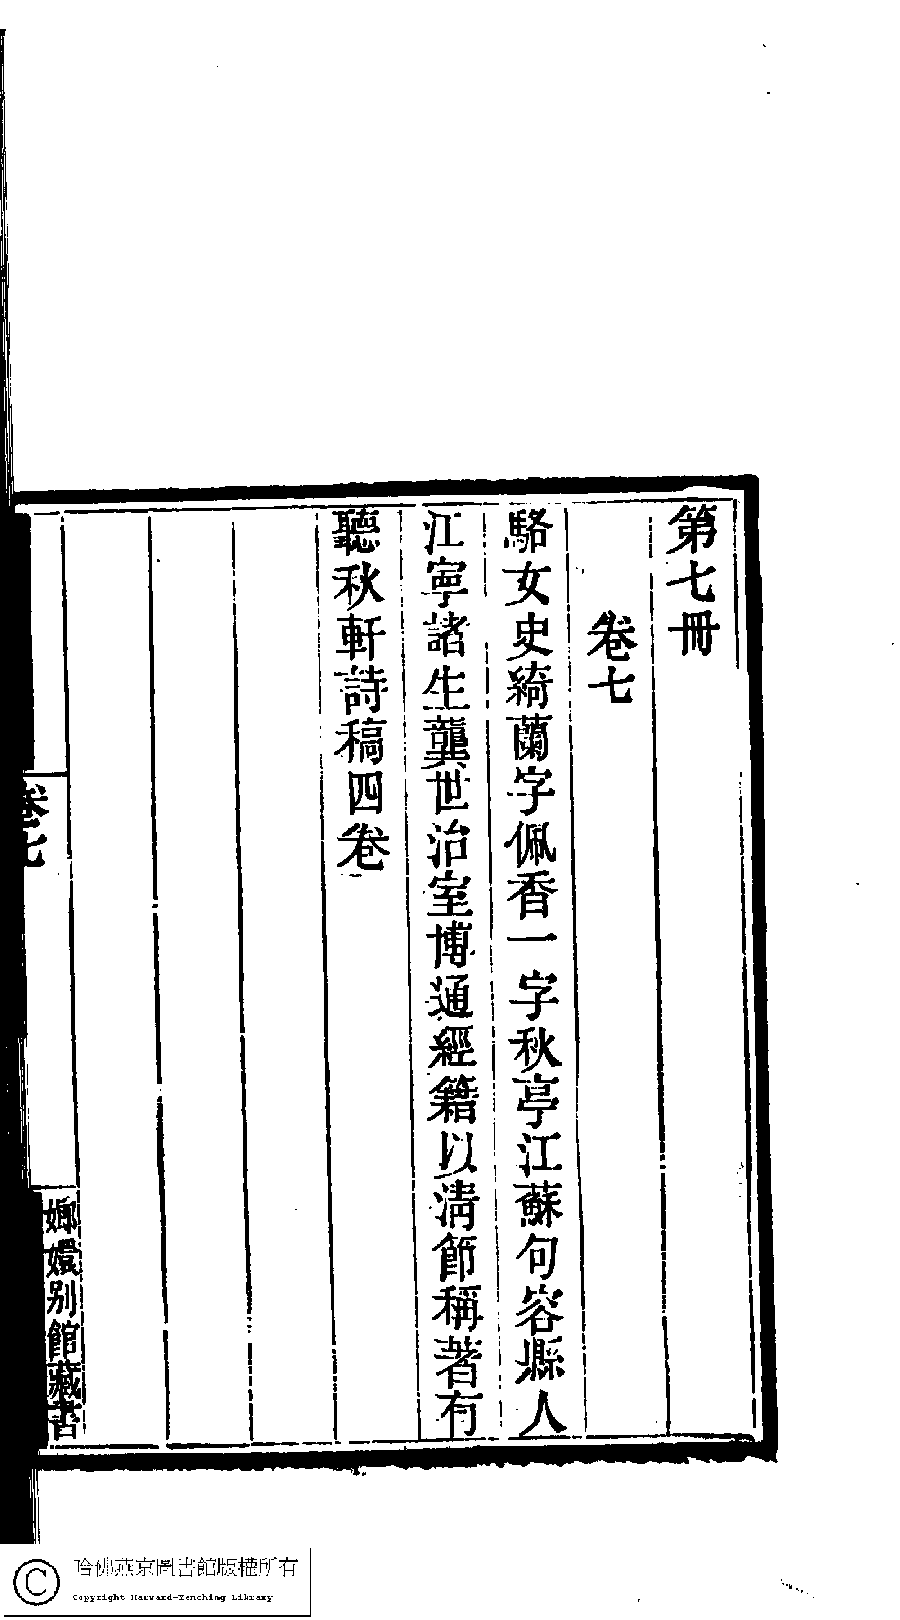 第七冊
卷七
駱女史綺蘭字佩香一字秋亭江蘇句容縣人
江寧諸生龔世治室博通經籍以清節稱著有
聽秋軒詩稿四卷
卷七
嫏嬛別館藏書
哈佛燕京圖書館版權所有
Copyright Harvard-Yenching Library